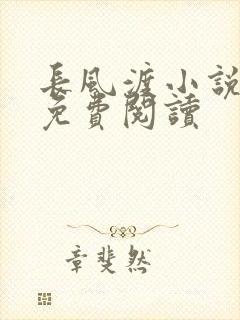 長風渡小說
免費閱讀
章斐然